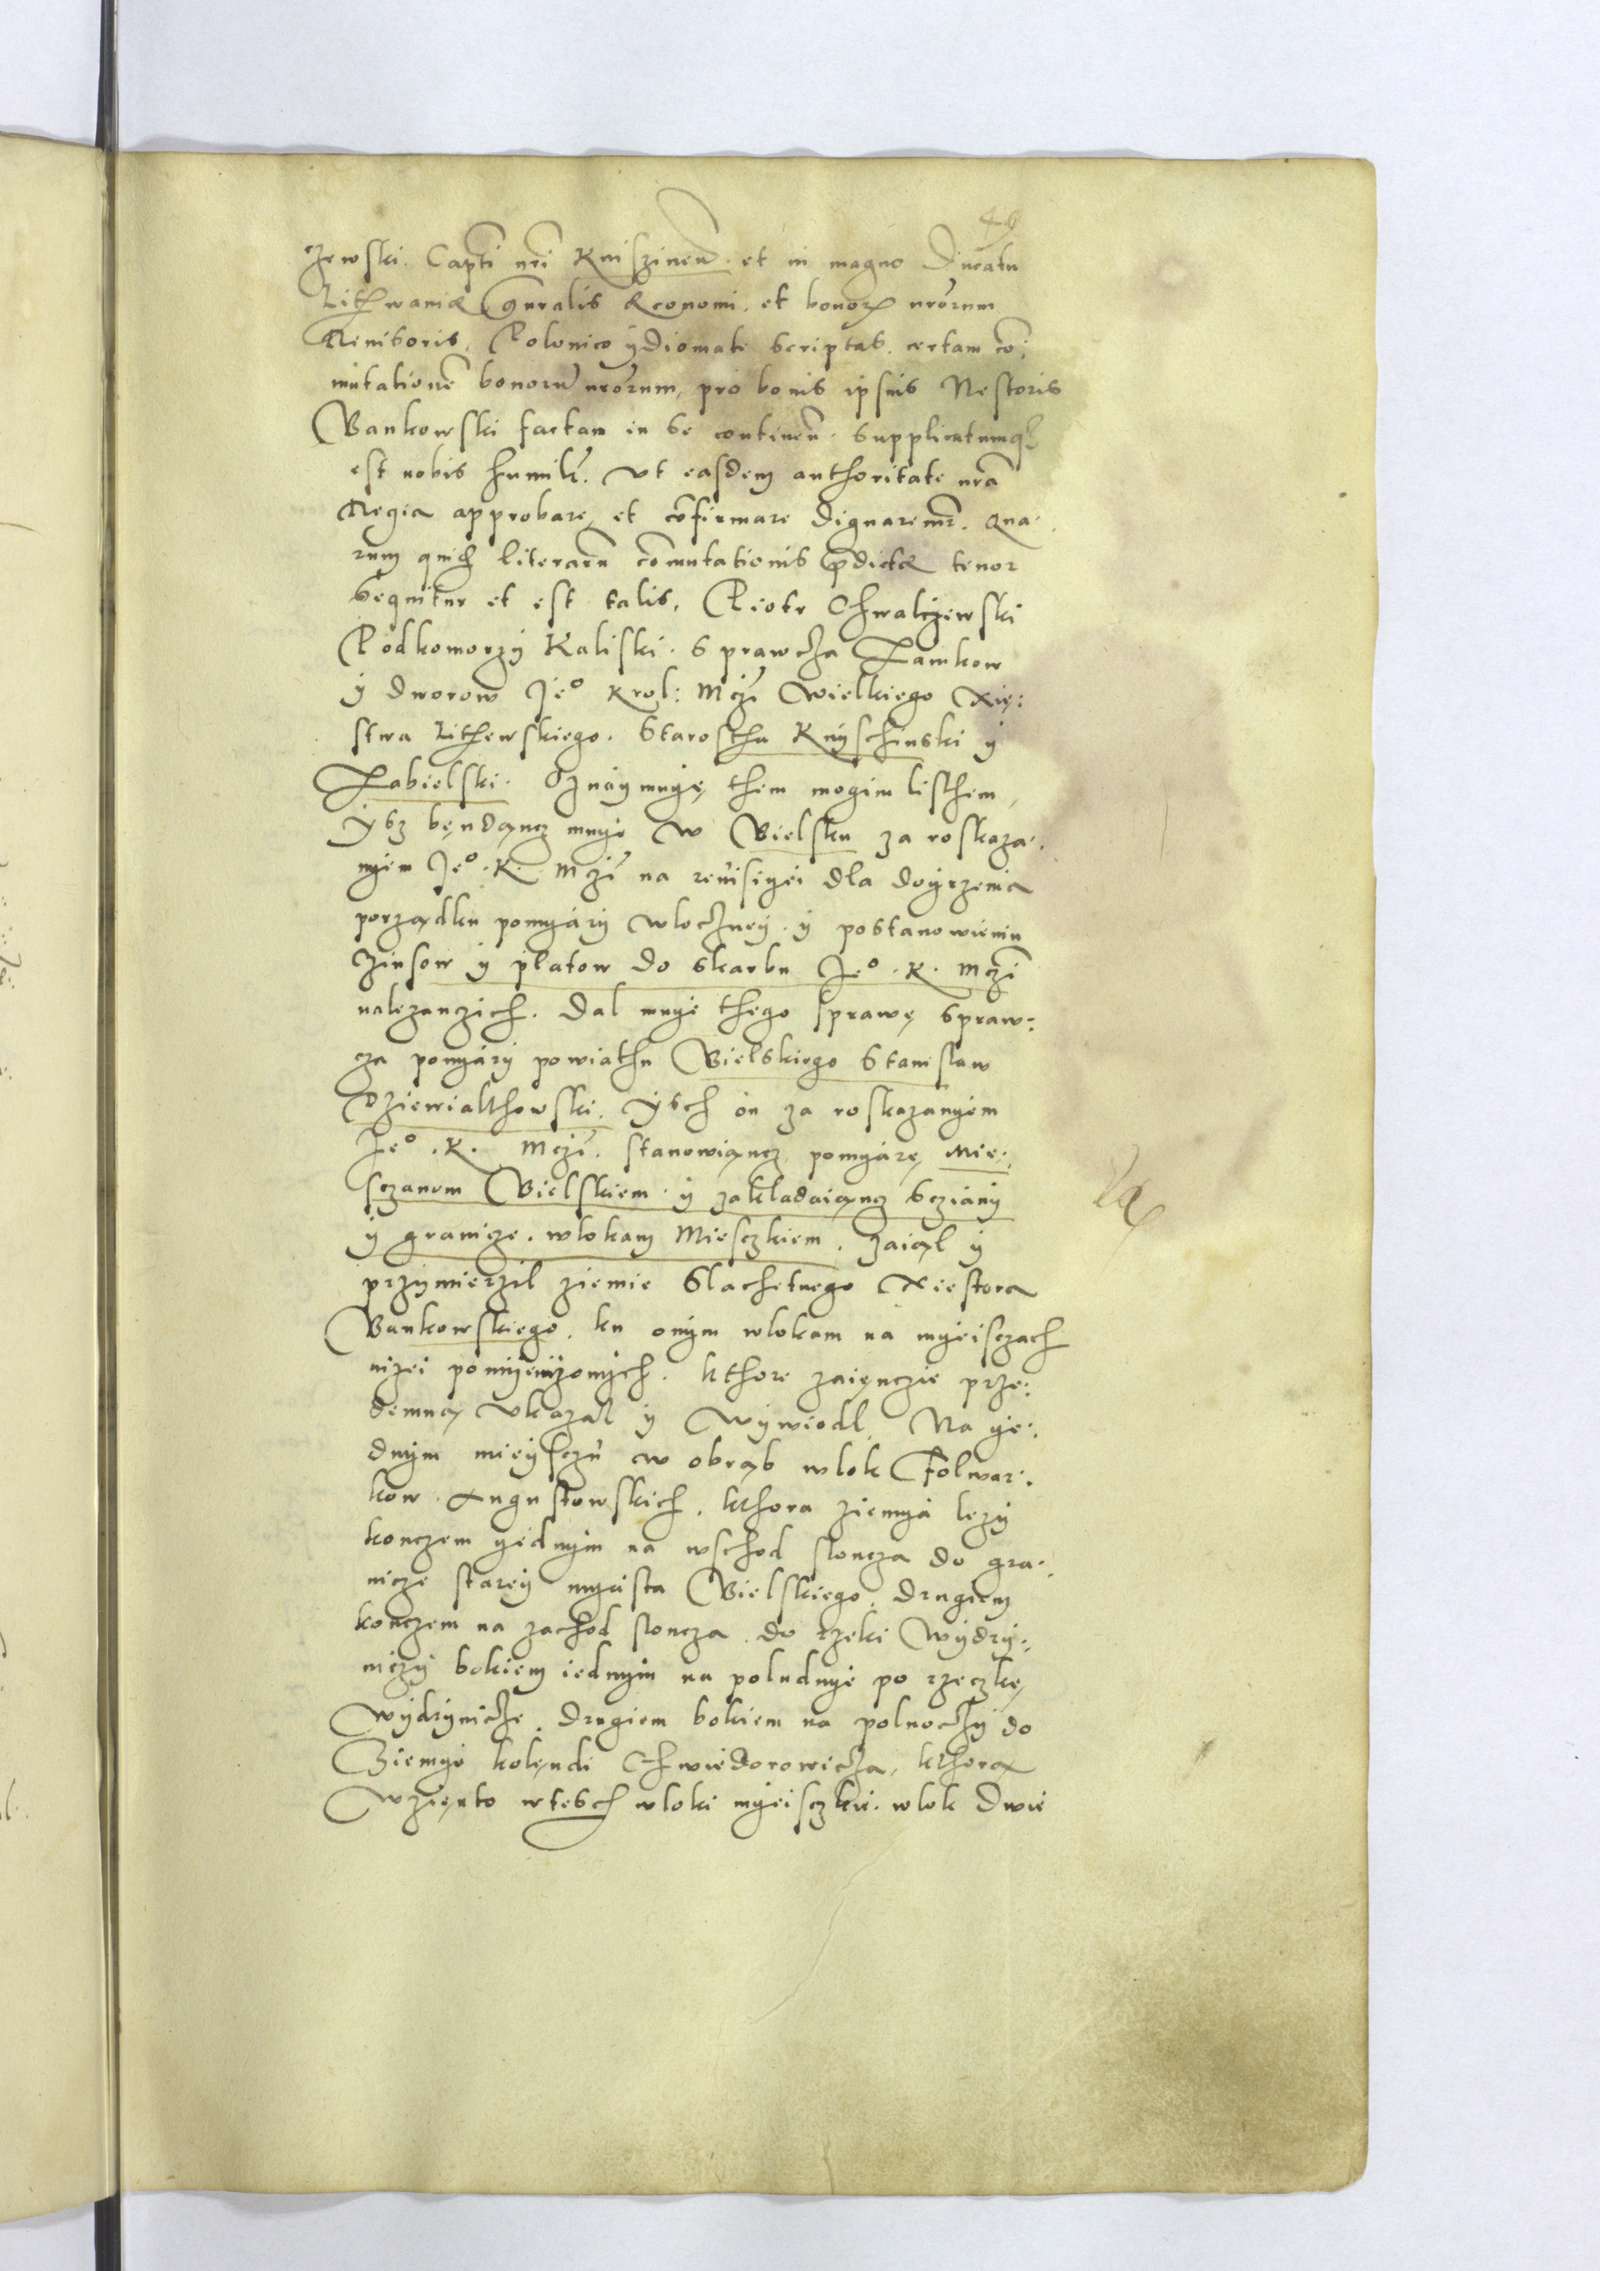 żewski. Capti nri Kniszinen. et in magno Ducatu
Lithwaniæ Gnralis Æconomi. et bonor nrorum
Revisoris. Polonico ydiomate scriptas. certam co:
mutatione bonoru nrorum, pro bonis ipsius Nestoris
Bankowski factam in se continen. supplicatumq
est nobis humilr. Vt easdem authoritate nra
Regia approbare, et cofirmare dignaremr. Qua.
rum quid literaru comutationis pdictæ tenor
sequitur et est talis. Piotr Chwalczewski
Podkomorzy Kaliski. Sprawcza Zamkow
y dworow Jeo Krol: Mczi Wielkiego Xię:
stwa Lithewskiego. Starostha Knyschinski y
Zabielski. Oznaymuyę them moyim listhem,
Ysz bęndącz mnye w Bielsku za roskaza.
nyem Jeo. K. Mczi na revisiyei dla doyrzenia
porządku pomyary włoczney. y postanowieniu
Zinsow y płatow do skarbu Jeo. K. Mczi
nalezanczich. Dal mnye thego sprawę spraw:
cza pomyary powiathu Bielskiego Stanisław
Dziewialthowski. Ysch on za roskazanyem
Jeo. K. Mczi. stanowiącz pomyarę Mie:
sczanom Bielskiem. y zakładaiącz sczianÿ
y granicze. włokam Miesczkiem. zaiął y
przymierził ziemie Slachetnego Niestora
Bankowskiego. ku onym włokam na myeisczach
nizei pomyenyonych. kthore zaięnczie prze:
demną vkazał y wywiodl. Na ye:
dnym mieysczu w obrąb włok Folwar:
kow Augustowskich. kthora ziemya lezy
konczem yednym na wschod słoncza do gra:
nicze starey myasta Bielskiego. drugiem
konczem na zachod słoncza. do rzeki Wydry:
niczy bokiem iednym na poludnye po rzeczkę
Wydrynicze. drugiem bokiem na polnoczy do
Ziemye kolendi Chwiedorowicza, kthorą
Wzięnto w tesch włoki myeisczkie. włok dwie